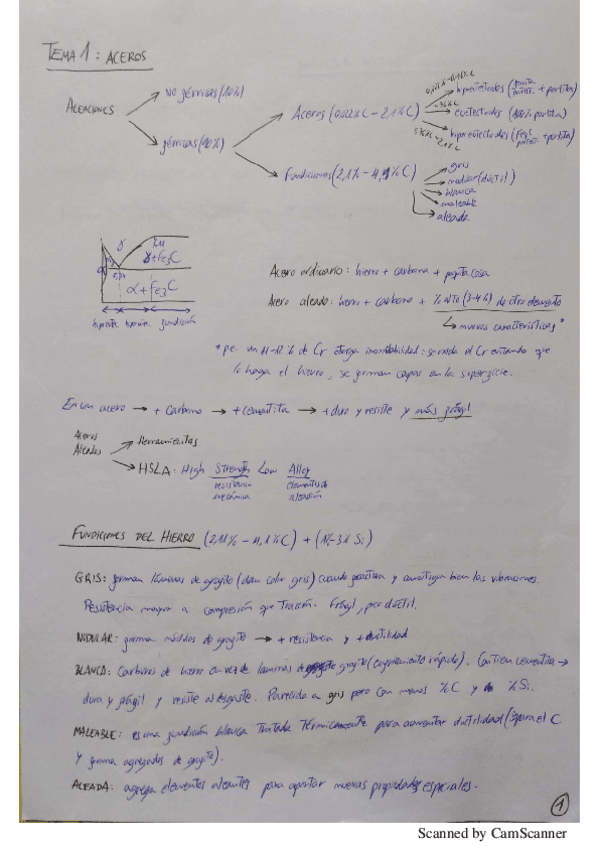 TEMA 1: ACEROS
ALEACIONES
NO férricas (10%)
férricas (90%)
Aceros (0,022%C - 2,1%C)
hipoeutectoides + perlita)
eutectoides (100% perlita)
hipereutectoides (Fe3C + perlita)
Fundiciones (2,1% - 4,1%C)
gris
nodular (dúctil)
blanca
maleable
aleada
γ
γ+Fe3C
α+Fe3C
fundición
Acero ordinario: hierro + carbono + poquita cosa
Acero aleado: hierro + carbono + % alto (3-4%) de otro elemento
nuevas características*
*p.e. un 11-12% de Cr otorga inoxidabilidad: se oxida el Cr evitando que
lo haga el hierro, se forman capas en la superficie.
En un acero → + carbono → + cementita → + duro y resiste y más frágil
Aceros
Aleados
Herramientas
HSLA: High Strength Low Alloy
resistencia
mecánica
elementos de
aleación
FUNDICIONES DEL HIERRO (2,11% - 4,1%C) + (1%-3% Si)
GRIS: forman láminas de grafito (dan color gris) cuando y amortiguan bien las vibraciones.
Resistencia mayor a compresión que tracción. Frágil, poco dúctil.
NODULAR: forma nódulos de grafito → + resistencia y + ductilidad
BLANCA: Carburos de hierro en vez de láminas de grafito (enfriamiento rápido). Contiene cementita →
dura y frágil y resiste al desgaste. Parecida a gris pero con menos %C y % Si.
MALEABLE: es una fundición blanca tratada térmicamente para aumentar ductilidad (separa el C
y forma agregados de grafito).
ALEADA: agrega elementos aleantes para aportar nuevas propiedades especiales.
1
Scanned by CamScanner